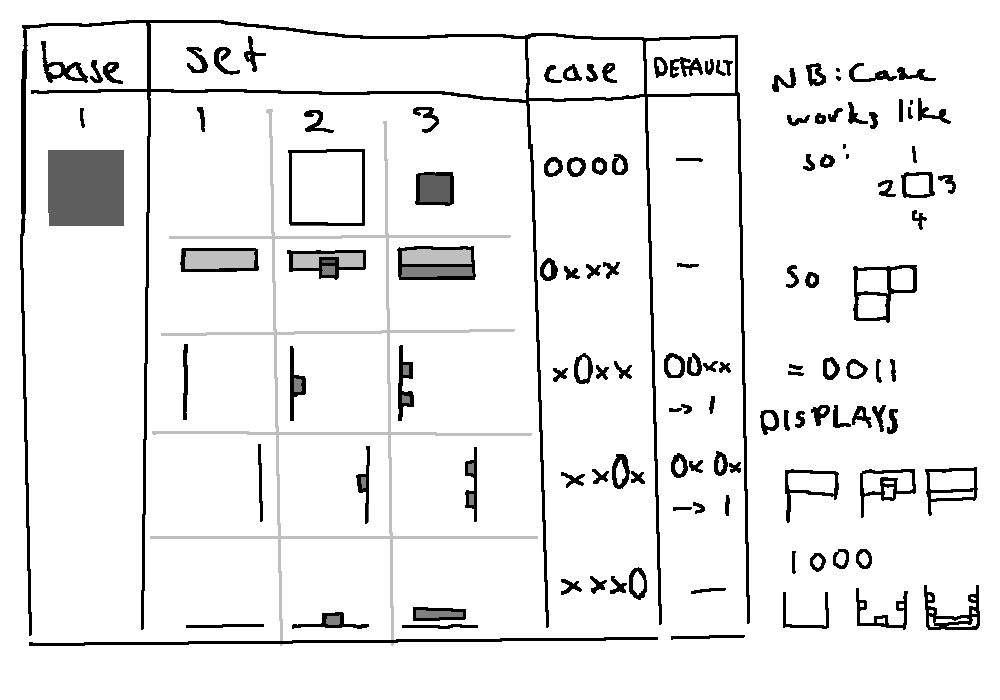 base set case DEFAULT
1 1 2 3
0000 —
0xxx —
x0xx 00xx
→ 1
xx0x 0x0x
→ 1
xxx0 —
NB: Case
works like
so:
1
2 3
4
so
= 0011
DISPLAYS
1000